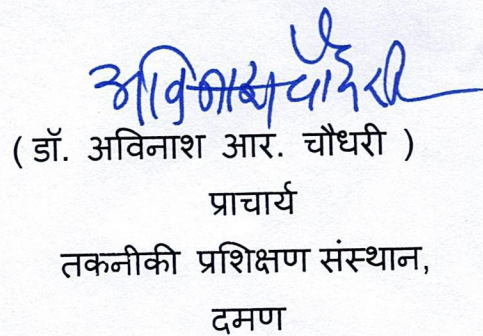 अविनाश चौधरी
( डॉ. अविनाश आर. चौधरी )
प्राचार्य
तकनीकी प्रशिक्षण संस्थान,
दमण